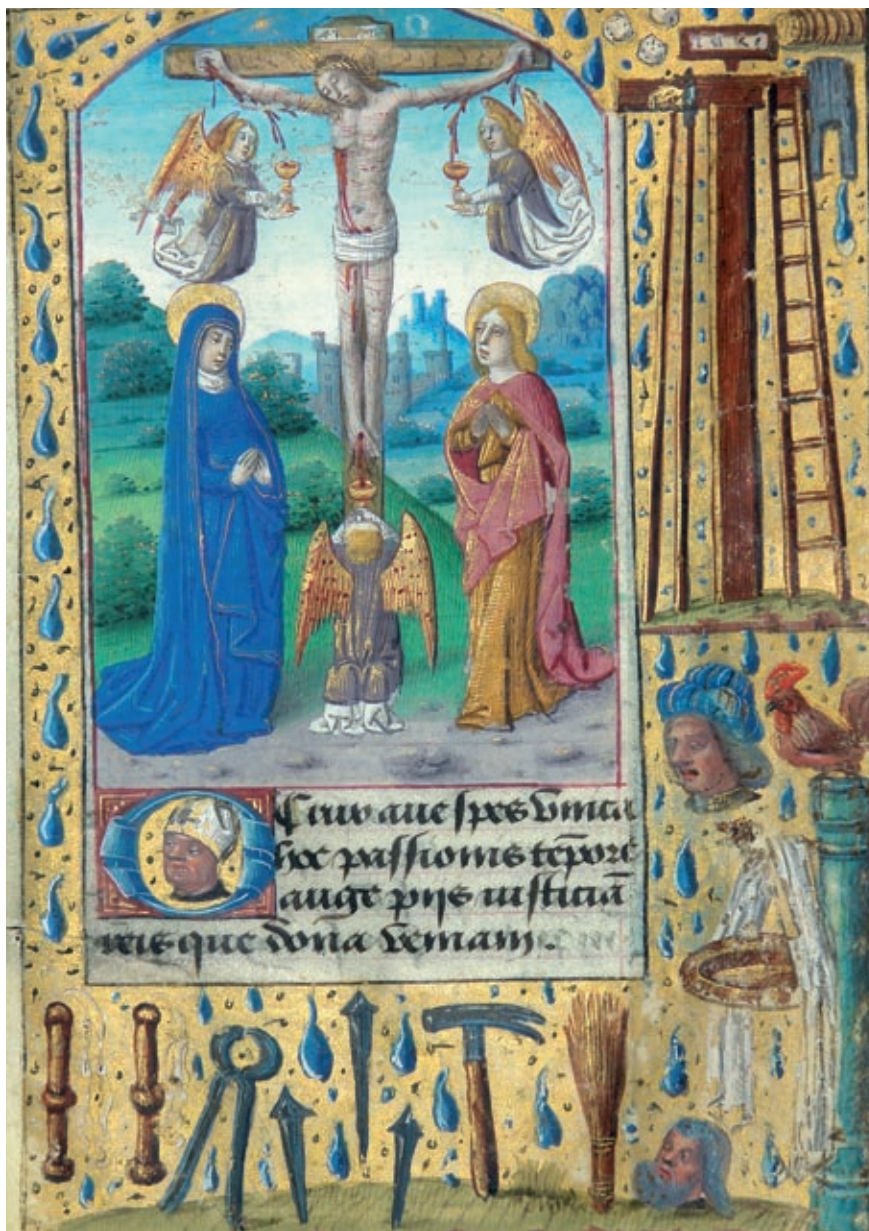 INRI
O Crux aue spes vnica
hoc passionis tēpore
auge pijs iusticiā
reis que dona veniam.